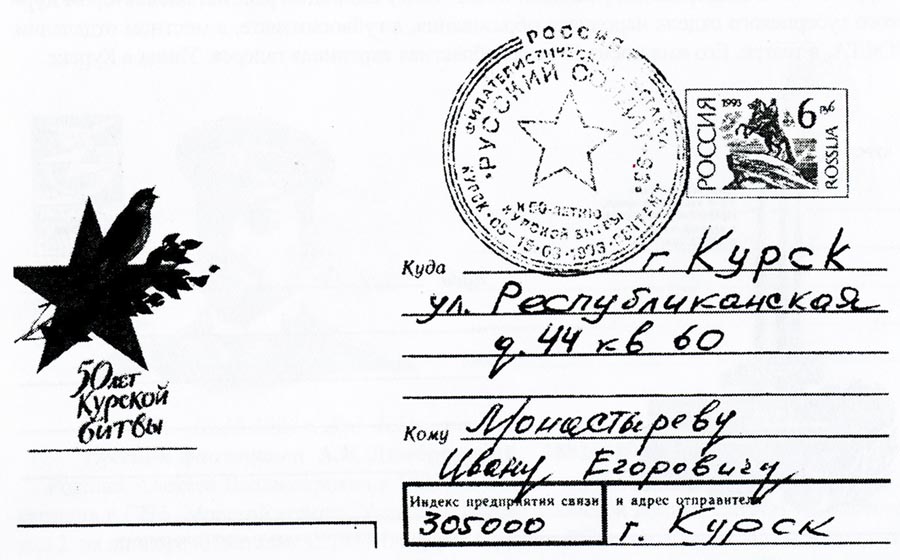 РОССИЯ
ФИЛАТЕЛИСТИЧЕСКАЯ
"РУССКИЙ
К 50-ЛЕТИЮ
КУРСКОЙ БИТВЫ
КУРСК
РОССИЯ 1993 6 руб
ROSSIJA
50 лет
Курской
битвы
Куда г. Курск
ул. Республиканская
д. 44 кв 60
Кому Монастыреву
Ивану Егоровичу
Индекс предприятия связи и адрес отправителя
305000 г. Курск